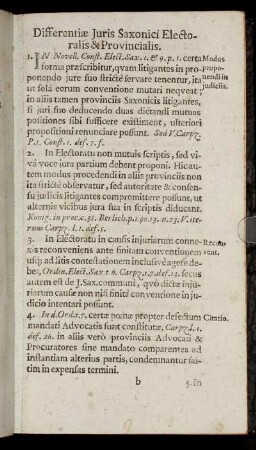 Differentiæ Juris Saxonici Electo-
ralis & Provincialis.
1. IN Novell. Const. Elect. Sax. 1. & 9. p. 1. certa
Modus proponendi in judiciis.
forma præscribitur, qvam litigantes in pro-
ponendo jure suo strictè servare tenentur, ita
ut sola eorum conventione mutari neqveat:
in aliis tamen provinciis Saxonicis litigantes,
si juri suo deducendo duas dictandi mutuas
positiones sibi sufficere existiment, ulteriori
propositioni renunciare possunt. Sed V. Carpz.
P. 1. Const. 1. def. 7. f.
2. In Electoratu non mutuis scriptis, sed vi-
vâ voce jura partium debent proponi. Hic au-
tem modus procedendi in aliis provinciis non
ita strictè observatur, sed autoritate & consen-
su judicis litigantes compromittere possunt, ut
alternis vicibus jura sua in scriptis diducant.
Konig. in proc. c. 31. Berlich. p. 1. qv. 13. n. 23. V. ite-
rum Carpz. l. 1. def. 5.
3. In Electoratu in causis injuriarum conne-
Reconvent.
xis reconveniens ante finitum conventionem
usq; ad litis contestationem inclusivè agere de-
bet, Ordin. Elect. Sax. t. 6. Carpz. 1. 7. def. 13. secus
autem est de J. Sax. communi, qvo dictæ inju-
riarum causæ non nisi finitâ conventione in ju-
dicio intentari possunt.
4. In d. Ord. t. 7. certæ pœnæ propter defectum
Citatio.
mandati Advocatis sunt constitutæ, Carpz. d. l.
def. 26. in aliis verò provinciis Advocati &
Procuratores sine mandato comparentes ad
instantiam alterius partis, condemnantur sal-
tim in expensas termini.
b
5. In